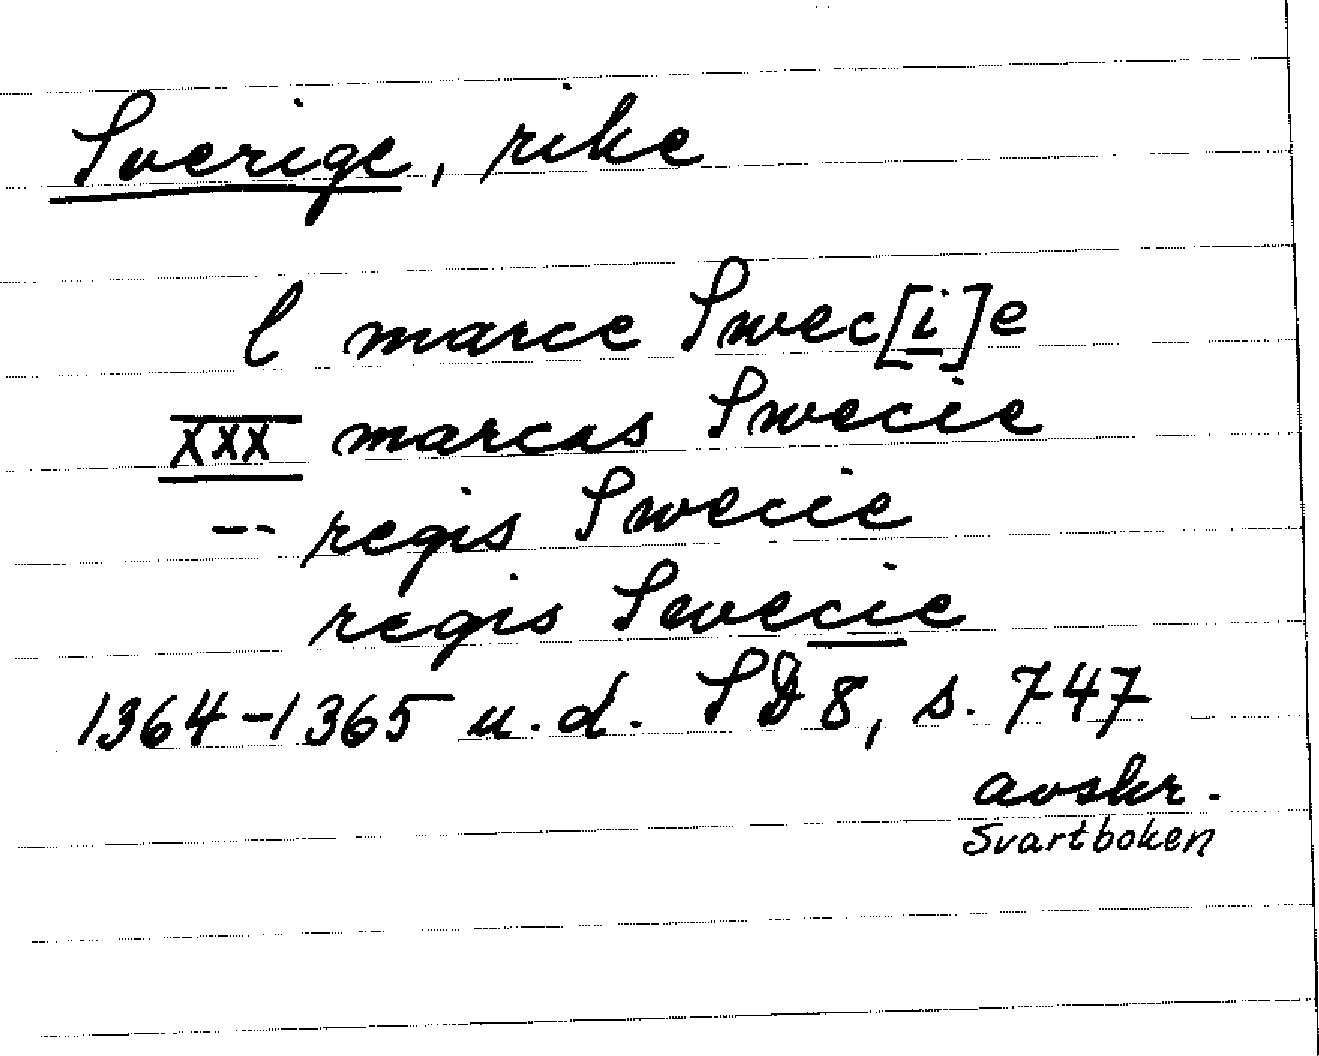 Sverige, rike
l marce Swec[i]e
XXX marcas Swecie
-- regis Swecie
regis Swecie
1364-1365 u.d. SD 8, s. 747
avskr.
Svartboken